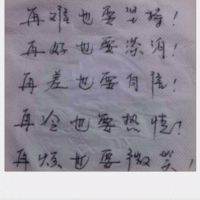 再难也要坚持！
再好也要淡泊！
再差也要自信！
再冷也要热情！
再烦也要微笑！